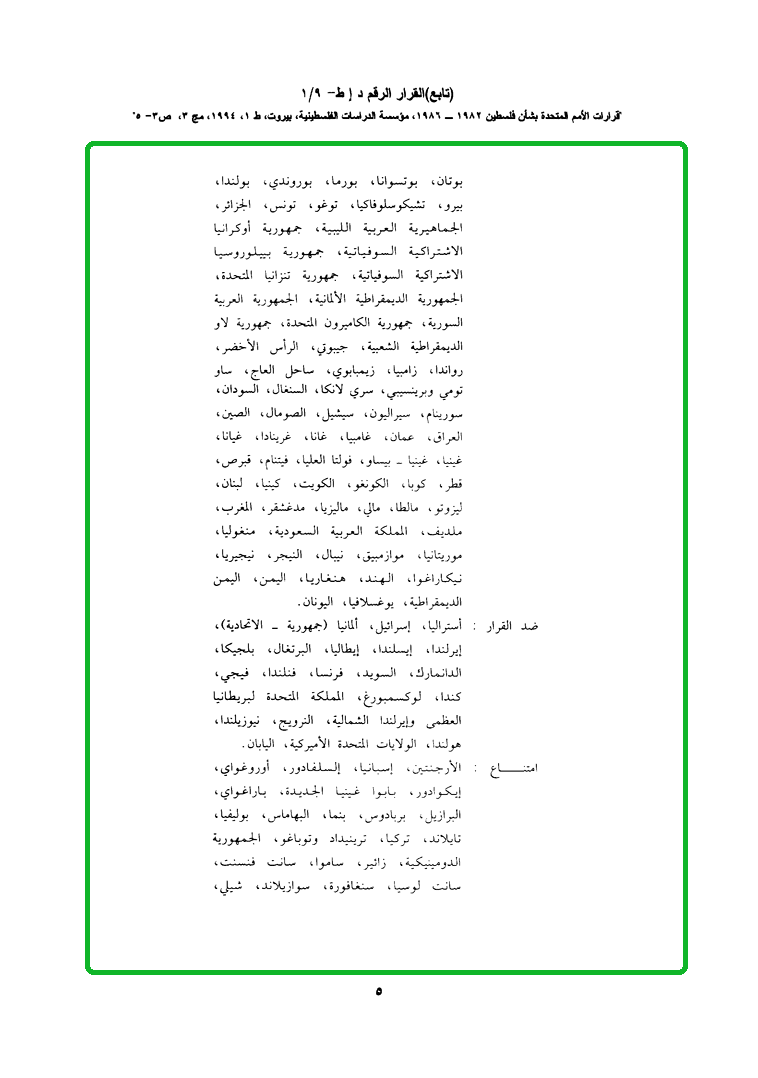 (تابع)القرار الرقم د إ ط- ١/٩
"قرارات الأمم المتحدة بشأن فلسطين ١٩٨٢ – ١٩٨٦، مؤسسة الدراسات الفلسطينية، بيروت، ط ١، ١٩٩٤، مج ٣، ص٣- ٥"
بوتان، بوتسوانا، بورما، بوروندي، بولندا،
بيرو، تشيكوسلوفاكيا، توغو، تونس، الجزائر،
الجماهيرية العربية الليبية، جمهورية أوكرانيا
الاشتراكية السوفياتية، جمهورية بييلوروسيا
الاشتراكية السوفياتية، جمهورية تنزانيا المتحدة،
الجمهورية الديمقراطية الألمانية، الجمهورية العربية
السورية، جمهورية الكاميرون المتحدة، جمهورية لاو
الديمقراطية الشعبية، جيبوتي، الرأس الأخضر،
رواندا، زامبيا، زيمبابوي، ساحل العاج، ساو
تومي وبرينسيبي، سري لانكا، السنغال، السودان،
سورينام، سيراليون، سيشيل، الصومال، الصين،
العراق، عمان، غامبيا، غانا، غرينادا، غيانا،
غينيا، غينيا ـ بيساو، فولتا العليا، فيتنام، قبرص،
قطر، كوبا، الكونغو، الكويت، كينيا، لبنان،
ليزوتو، مالطا، مالي، ماليزيا، مدغشقر، المغرب،
ملديف، المملكة العربية السعودية، منغوليا،
موريتانيا، موازمبيق، نيبال، النيجر، نيجيريا،
نيكاراغوا، الهند، هنغاريا، اليمن، اليمن
الديمقراطية، يوغسلافيا، اليونان.
ضد القرار : أستراليا، إسرائيل، ألمانيا (جمهورية ـ الاتحادية)،
إيرلندا، إيسلندا، إيطاليا، البرتغال، بلجيكا،
الدانمارك، السويد، فرنسا، فنلندا، فيجي،
كندا، لوكسمبورغ، المملكة المتحدة لبريطانيا
العظمى وإيرلندا الشمالية، النرويج، نيوزيلندا،
هولندا، الولايات المتحدة الأميركية، اليابان.
امتنـــــاع : الأرجنتين، إسبانيا، إلسلفادور، أوروغواي،
إيكوادور، بابوا غينيا الجديدة، باراغواي،
البرازيل، بربادوس، بنما، البهاماس، بوليفيا،
تايلاند، تركيا، ترينيداد وتوباغو، الجمهورية
الدومينيكية، زائير، ساموا، سانت فنسنت،
سانت لوسيا، سنغافورة، سوازيلاند، شيلي،
٥